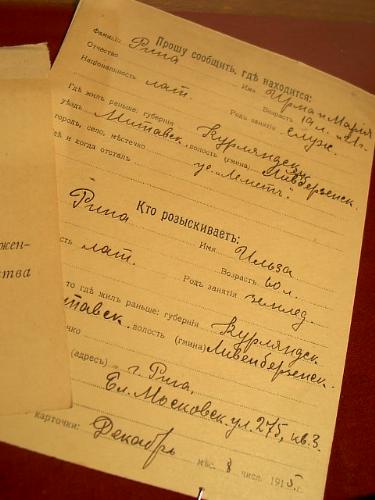 Прошу сообщить, где находится:
Фамилія Рина Имя Ирма и Марія
Отчество Возрастъ 19 л. и 21 л.
Національность лат. Родъ занятія служ.
Где жилъ раньше: губернія Курляндск.
уѣздъ Митавск. волость (гмина) Ливберзенск.
городъ, село, мѣстечко
и когда отсталъ
Кто розыскиваетъ:
Рина Имя Ильза
Возрастъ 60 л.
сть лат. Родъ занятія землед.
то где жилъ раньше: губернія Курляндск.
итавск. волость (гмина) Ливенберзенск.
чко
(адресъ) г. Рига,
Ел. Московск. ул. 275, кв. 3.
карточки: Декабрь мѣс. 8 числ. 1915 г.
жен-
ства